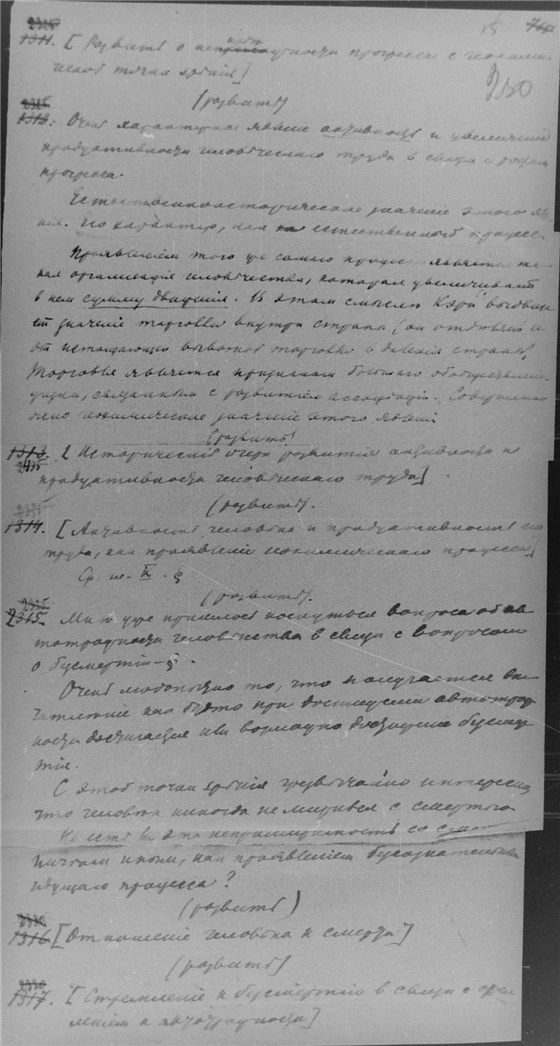 15 714
950
2325
1311. [Развить о непрерывности прогресса с геохими-
ческой точки зрѣнія]
(развить)
2325
1312. Очень характерное явленіе активность и увеличеніе
продуктивности человѣческаго труда в связи с
прогресса.
Естественноисторическое значеніе этого яв-
нія. Его характер, как естественного процесса.
Проявленіем того же самаго процесса является та-
кая организація человѣчества, которая увеличивает
в нем сумму движенія. В этом смыслѣ Кэри выдвига-
ет значеніе торговли внутри страны (он отдѣляет ее
от истощающей вывозной торговли в далекія страны).
Торговля является признаком большаго обобществленія
связанным с развитіем ассоціацій. Совершенно
ясно геохимическое значеніе этого явленія
(развить)
1313. [Историческій очерк развитія активности и
2435
продуктивности человѣческаго труда]
(развить).
2335
1314. [Активность человѣка и продуктивность его
труда, как проявленіе геохимическаго процесса]
Ср. гл. §
(развить).
2315. Мнѣ уже пришлось коснуться вопроса об ав-
тотрофности человѣчества в связи с вопросом
о бессмертіи - § .
Очень любопытно то, что получается впе-
чатлѣніе как будто при достиженіи автотроф-
ности достигается или возможно достиженіе бессмер-
тія.
С этой точки зрѣнія чрезвычайно интересно,
что человѣк никогда не мирился с смертью.
Не есть ли эта непримиримость со смертью
ничѣм иным, как проявленіем безсознательно
идущаго процесса?
(развить)
1316. [Отношеніе человѣка к смерти]
(развить)
1317. [Стремленіе к бессмертію в связи с стрем-
леніем к автотрофности]